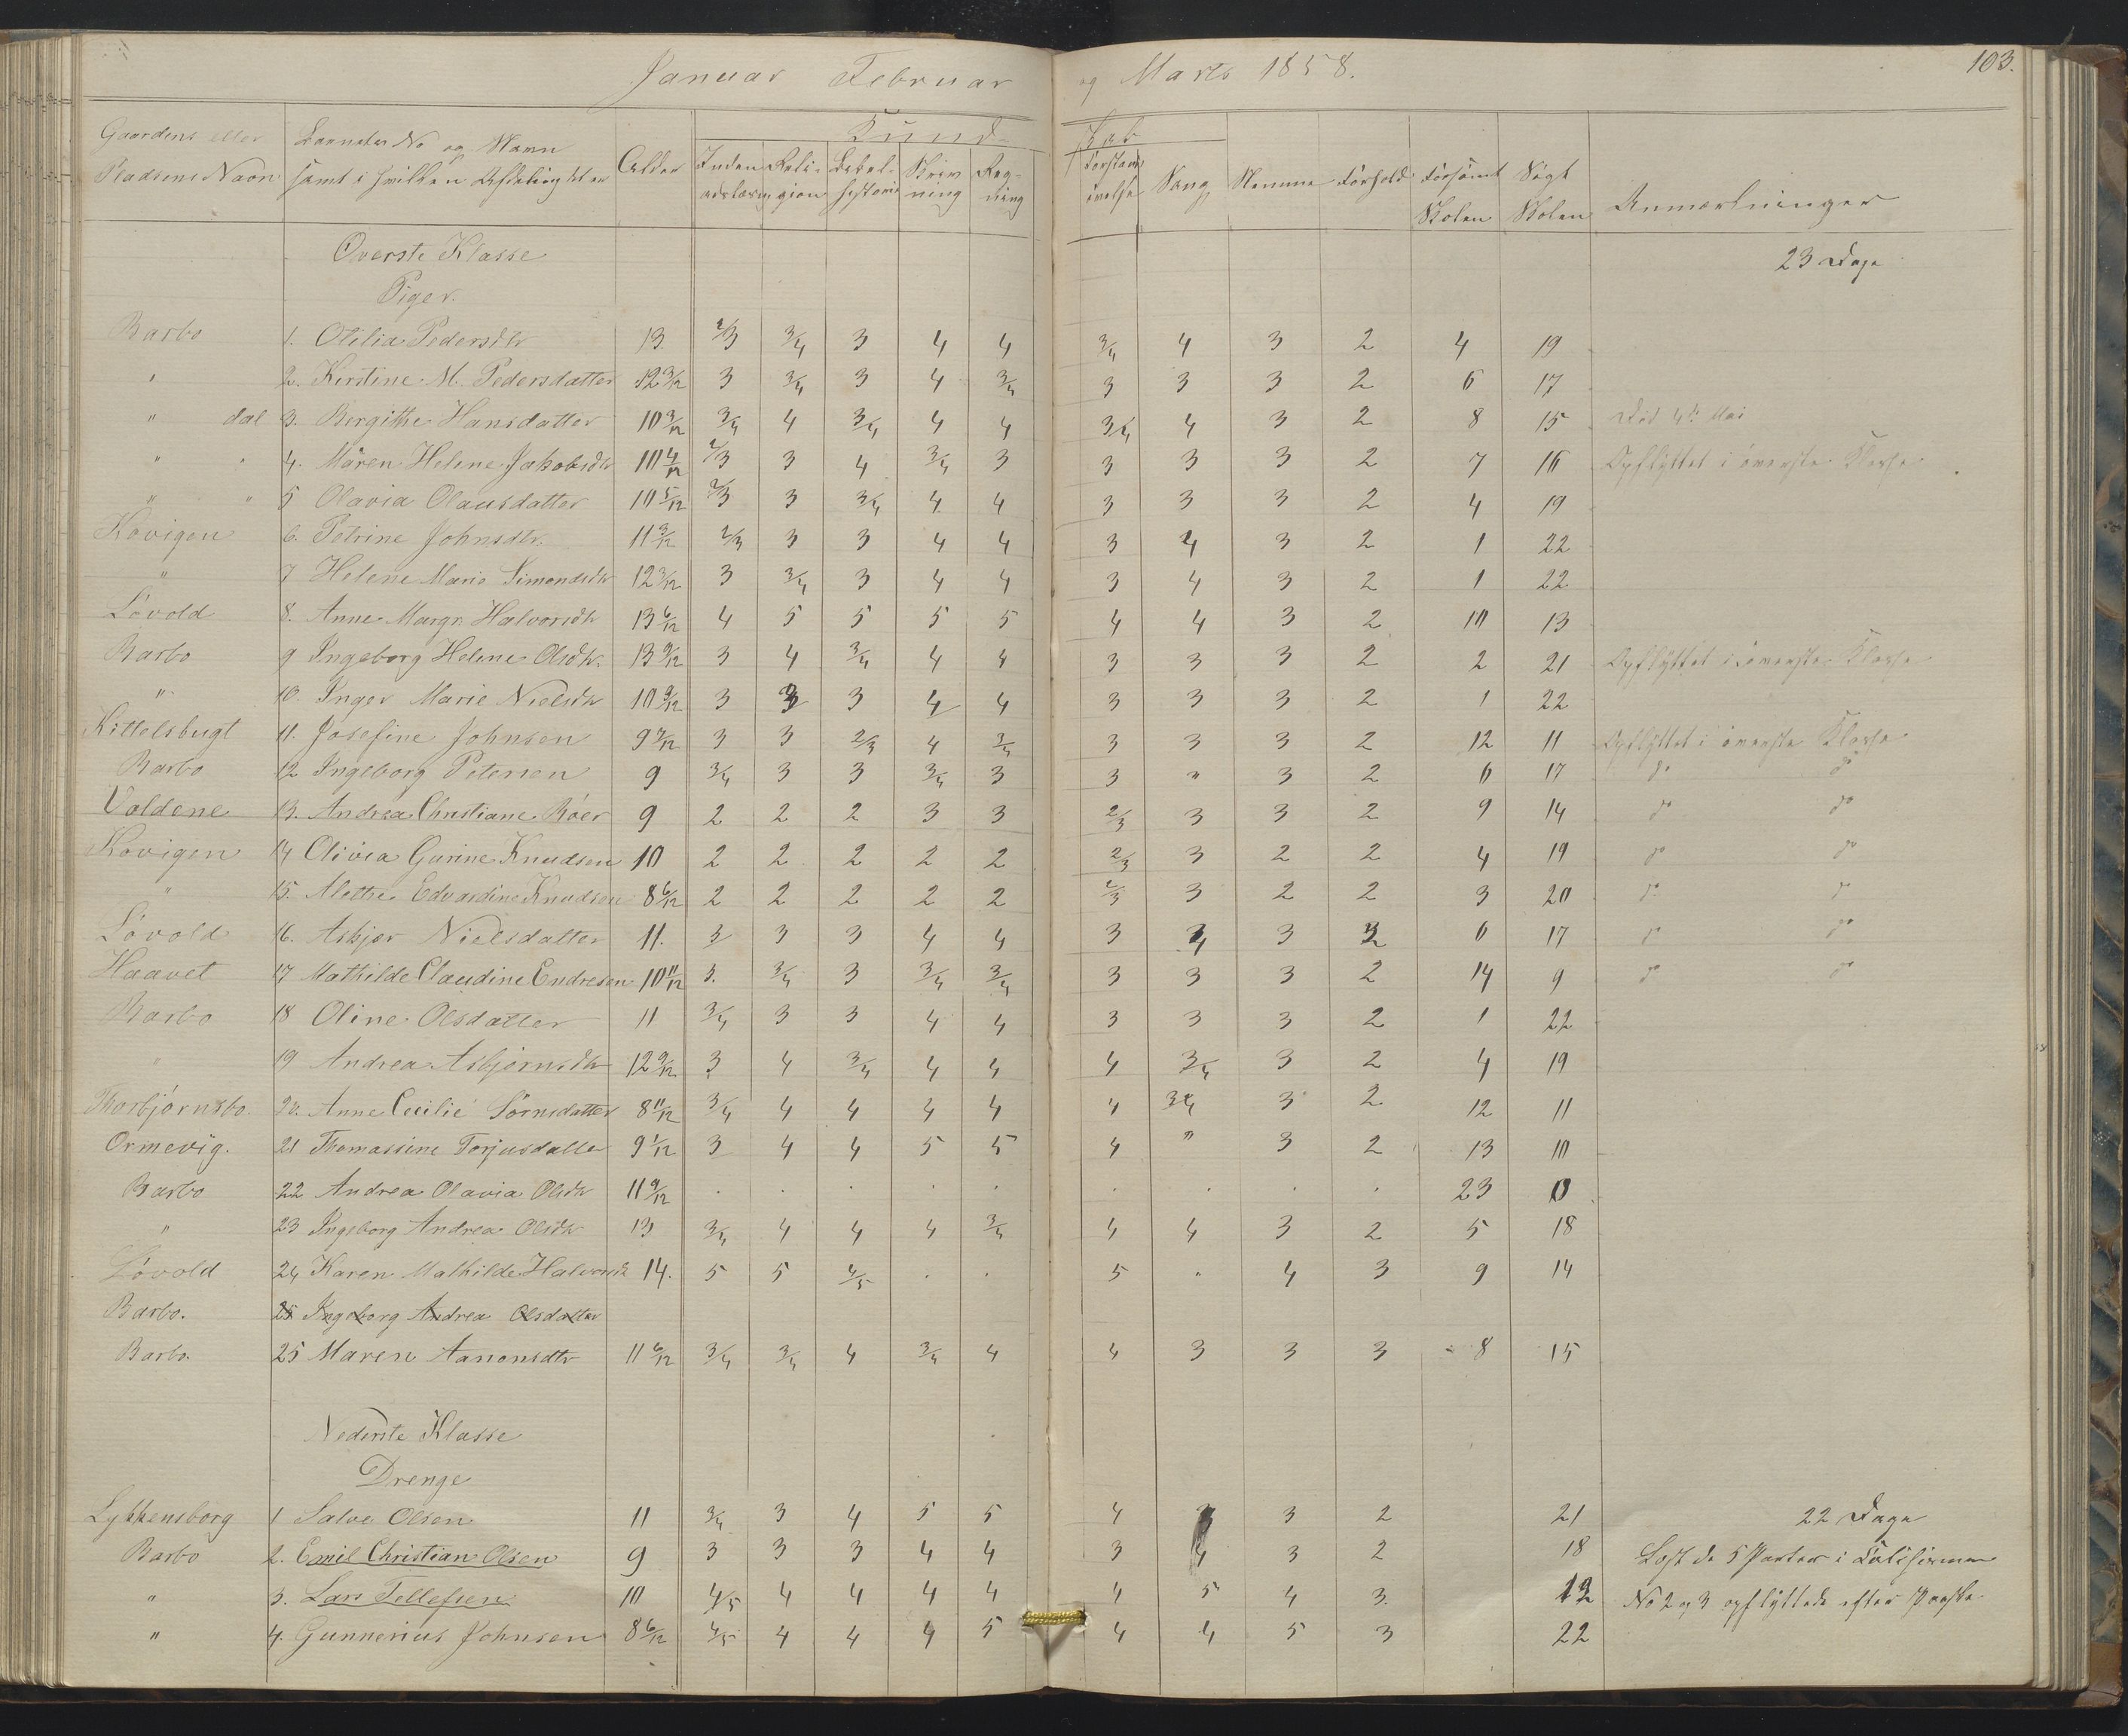 Januar Februar og Marts 1858. 103.
Gaardens eller Pladsens Navn Barnets No og Navn samt i hvilken Afdeling det er Alder Kundskab Indenadslæsn. Religion Bibelhistorie Skrivning Regning Forstandsøvelse Sang Nemme Forhold Forsømt Skolen Søgt Skolen Anmærkninger
Øverste Klasse 23 Dage
Piger.
Barbo 1. Otilia Pedersdtr 13 2/3 3/4 3 4 4 3/4 4 3 2 4 19
" 2. Kirstine M. Pedersdatter 12 3/12 3 3/4 3 4 3/4 3 3 3 2 6 17
" dal 3. Bergithe Hansdatter 10 3/12 3/4 4 3/4 4 4 3/4 4 3 2 8 15 Död 4de Mai
" " 4. Maren Helene Jakobsdtr 10 4/12 2/3 3 4 3/4 3 3 3 3 2 7 16 Opflyttet i øverste Klasse
" " 5 Olavia Olausdatter 10 5/12 2/3 3 3/4 4 4 3 3 3 2 4 19
Kovigen 6. Petrine Johnsdtr. 11 3/12 2/3 3 3 4 4 3 4 3 2 1 22
" 7 Helene Marie Simondsdtr 12 3/12 3 3/4 3 4 4 3 4 3 2 1 22
Lövold 8. Anne Margr. Halvorsdtr 13 6/12 4 5 5 5 5 4 4 3 2 10 13
Barbo 9 Ingeborg Helene Olsdtr. 13 9/12 3 4 3/4 4 4 3 3 3 2 2 21 Opflyttet i øverste Klasse
" 10. Inger Marie Nielsdtr 10 9/12 3 3 3 4 4 3 3 3 2 1 22
Kittelsbugt 11. Josefine Johnsen 9 7/12 3 3 2/3 4 3/4 3 3 3 2 12 11 Opflyttet i øverste Klasse
Barbo 12 Ingeborg Petersen 9 3/4 3 3 3/4 3 3 " 3 2 6 17 do do
Voldene 13. Andrea Christiane Röer 9 2 2 2 3 3 2/3 3 3 2 9 14 do do
Kovigen 14 Olivia Gurine Knudsen 10 2 2 2 2 2 2/3 3 2 2 4 19 do do
" 15. Alethe Edvardine Knudsen 8 6/12 2 2 2 2 2 2/3 3 2 2 3 20 do do
Lövold 16. Asbjør Nielsdatter 11. 3 3 3 4 4 3 4 3 2 6 17 do do
Haavet 17 Mathilde Claudine Endresen 10 11/12 3. 3/4 3 3/4 3/4 3 3 3 2 14 9 do do
Barbo 18 Oline Olsdatter 11 3/4 3 3 4 4 3 3 3 2 1 22
" 19 Andrea Asbjørnsdtr 12 9/12 3 4 3/4 4 4 4 3/4 3 2 4 19
Thorbjørnsbo. 20. Anne Cecilie Sörnsdatter 8 11/12 3/4 4 4 4 4 4 3/4 3 2 12 11
Ormevig. 21 Thomassine Torjusdatter 9 1/12 3 4 4 5 5 4 " 3 2 13 10
Barbo 22 Andrea Olavia Olsdtr 11 9/12 . . . . . . . . . 23 0
" 23 Ingeborg Andrea Olsdtr 13 3/4 4 4 4 3/4 4 4 3 2 5 18
Lövold 24 Karen Mathilde Halvorsdtr 14. 5 5 4/5 . . 5 . 4 3 9 14
Barbo. 25 Ingeborg Andrea Olsdatter
Barbo. 25 Maren Aanonsdtr 11 6/12 3/4 3/4 4 3/4 4 4 3 3 3 8 15
Nederste Klasse
Drenge
Lykkensborg 1 Salve Olsen 11 3/4 3 4 5 5 4 3 2 21 22 Dage
Barbo 2. Emil Christian Olsen 9 3 3 3 4 4 3 4 3 2 18 Læst de 5 Parter i
" 3. Lars Tellefsen 10 4/5 4 4 4 4 4 5 4 3. 12 No 2 og 3 opflyttede efter Paaske.
" 4. Gunnerius Johnsen 8 6/12 4/5 4 4 4 5 4 4 5 3 22